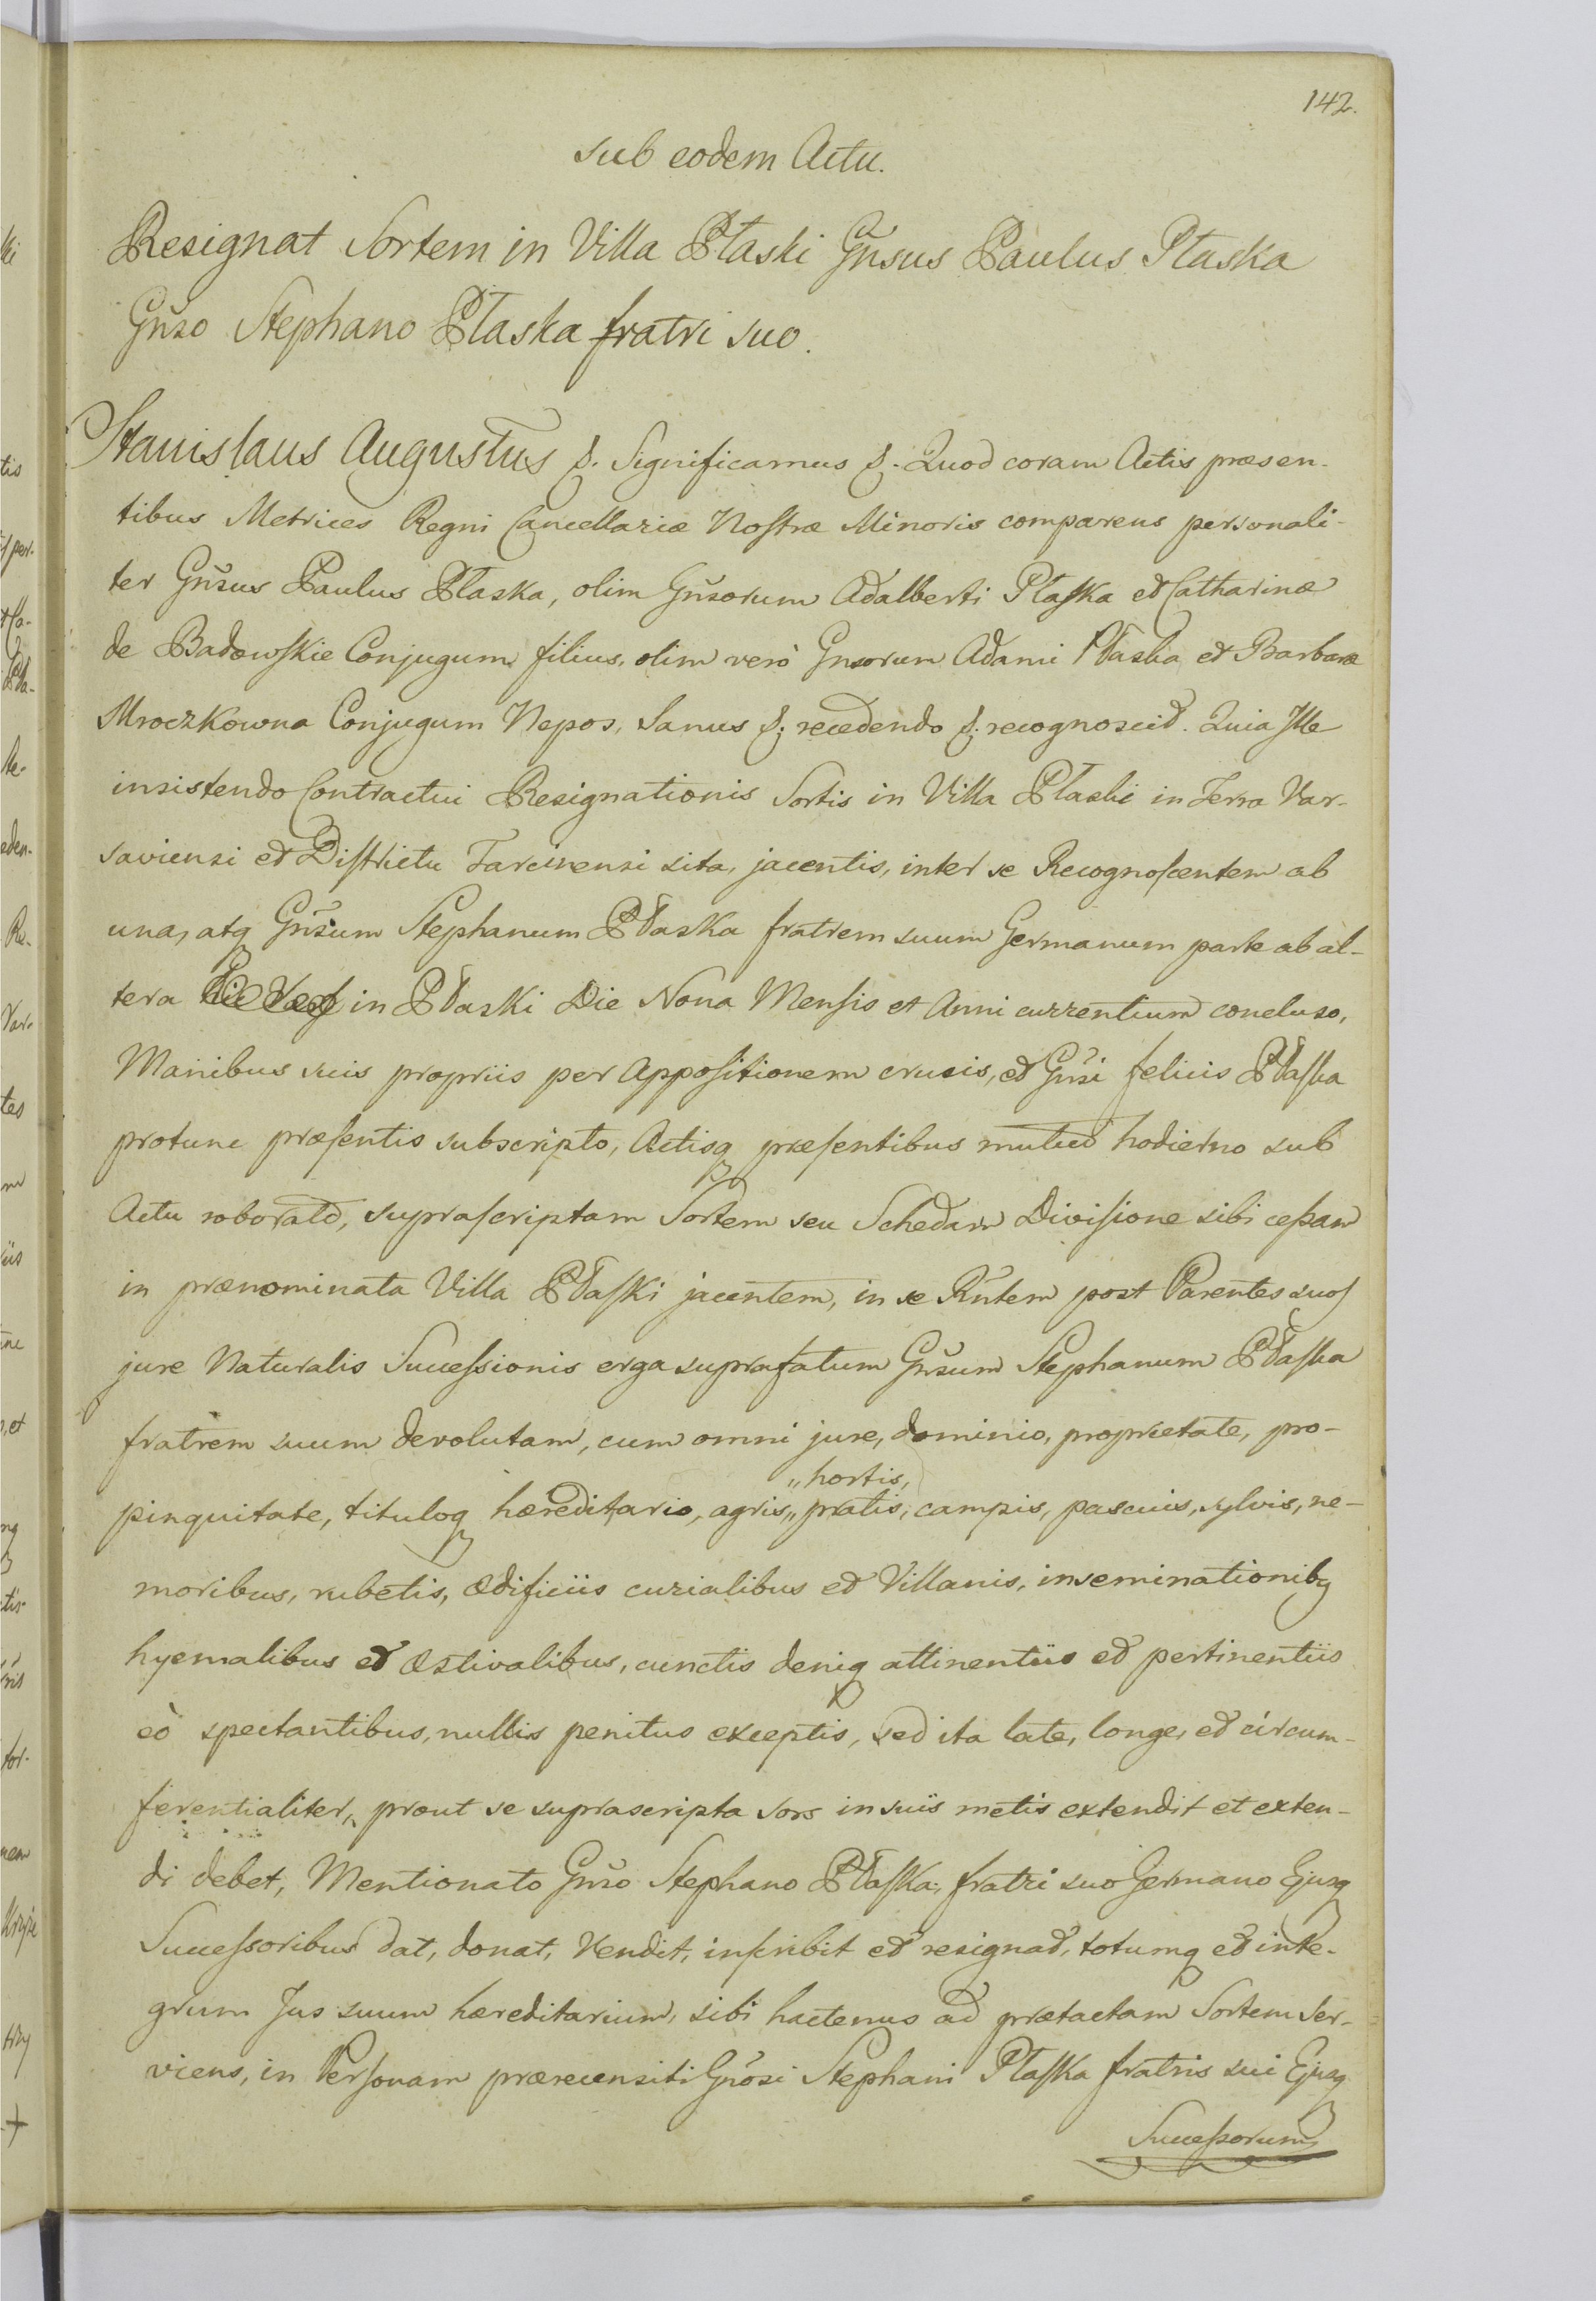 142.
sub eodem Actu.
Resignat Sortem in Villa Ptaski Gñsus Paulus Ptaska
Gñso Stephano Ptaska fratri suo.
Stanislaus Augustus &. Significamus &. Quod coram Actis præsen-
tibus Metrices Regni Cancellariæ Nostræ Minoris comparens personali-
ter Gñsus Paulus Ptaska, olim Gñsorum Adalberti Ptaska et Catharinæ
de Badowskie Conjugum filius, olim verò Gnsorum Adami Ptaska et Barbaræ
Mroczkowna Conjugum Nepos, Sanus &; recedendo &; recognoscit. Quia Ille
insistendo Contractui Resignationis Sortis in Villa Ptaski in Terra Var-
saviensi et Districtu Tarcinensi sita, jacentis, inter se Recognoscentem ab
una, atq Gñsum Stephanum Ptaska fratrem suum Germanum parte ab al-
tera in Ptaski Die Nona Mensis et Anni currentium concluso,
Manibus suis propriis per appositionem crucis, et Gñsi felicis Ptaska
protunc præsentis subscripto, Actisq præsentibus mutuò hodierno sub
Actu roborato, suprascriptam Sortem seu Schedam Divisione sibi cessam
in prænominata Villa Ptaski jacentem, in se Rñtem post Parentes suos
jure Naturalis Successionis erga suprafatum Gñsum Stephanum Ptaska
fratrem suum devolutam, cum omni jure, dominio, proprietate, pro-
„hortis,
pinquitate, tituloq hæreditario, agris„ pratis, campis, pascuis, sylvis, ne-
moribus, rubetis, ædificiis curialibus et Villanis, inseminationibq
hyemalibus et æstivalibus, cunctis deniq attinentiis et pertinentiis
eò spectantibus, nullis penitus exceptis, sed ita late, longe, et circum-
ferentialiter, prout se suprascripta sors in suis metis extendit et exten-
di debet, Mentionato Gñso Stephano Ptaska, fratri suo Germano Ejusq
Successoribus dat, donat, Vendit, inscribit et resignat, totumq et inte-
grum Jus suum hæreditarium, sibi hactenus ad prætactam Sortem ser-
viens, in Personam prærecensiti Gñosi Stephani Ptaska fratris sui Ejusq
Successorum